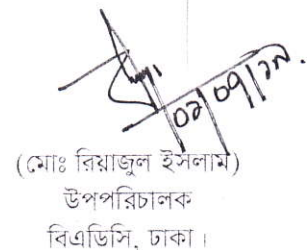 ০২/০৭/১৯.
(মোঃ রিয়াজুল ইসলাম)
উপপরিচালক
বিএডিসি, ঢাকা।